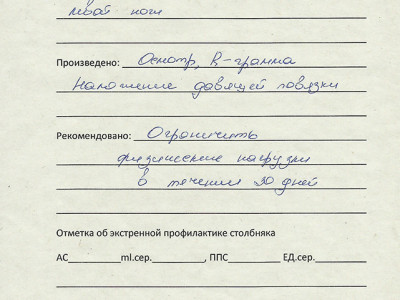 левой ноги
Произведено: Осмотр, R-грамма
Наложение давящей повязки
Рекомендовано: Ограничить
физические нагрузки
в течении 20 дней
Отметка об экстренной профилактике столбняка
АС__________ml.сер.__________, ППС__________ ЕД.сер.__________